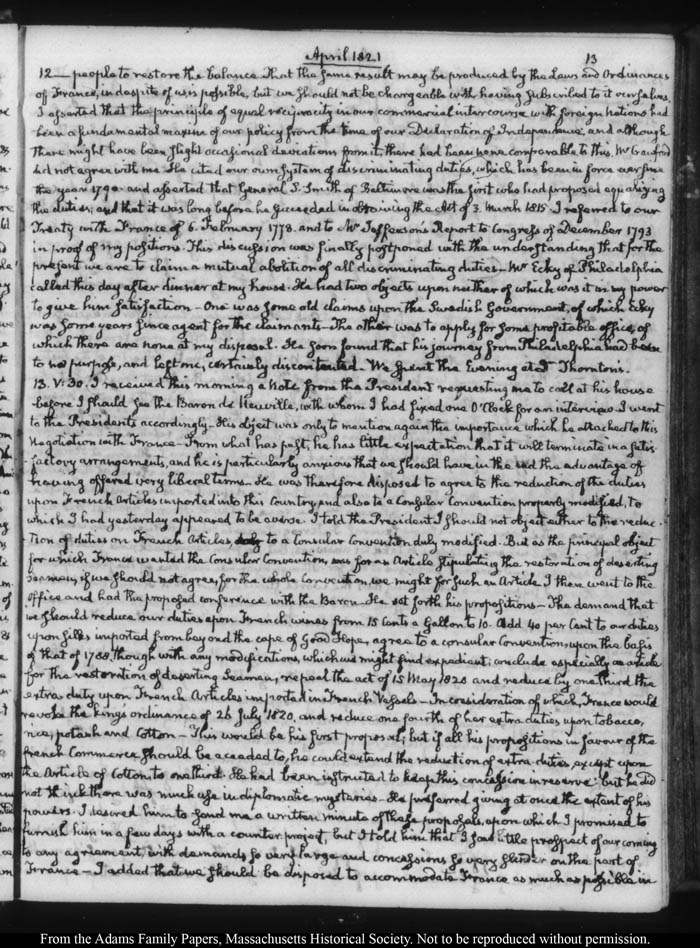 April 1821
13
12 — people to restore the balance. That the same result may be produced by the Laws and Ordinances
of France, indespite of us is possible, but we should not be chargeable with having subscribed to it ourselves.
I asserted that the principle of equal reciprocity in our commercial intercourse with foreign nations had
been a fundamental maxim of our policy from the time of our Declaration of Independence, and although
there might have been slight occasional deviations from it, there had been none comparable to this. Mr Crawford
did not agree with me. He cited our own system of discriminating duties, which has been in force ever since
the year 1790. and asserted that General S. Smith of Baltimore was the first who had proposed equalizing
the duties; and that it was long before he succeeded in obtaining the Act of 3. March 1815. I referred to our
Treaty with France of 6. February 1778. and to Mr Jefferson's Report to Congress of December 1793
in proof of my positions. This discussion was finally postponed with the understanding that for the
present we are to claim a mutual abolition of all discriminating duties — Mr Ecky of Philadelphia
called this day after dinner at my house. He had two objects upon neither of which was it in my power
to give him satisfaction — One was some old claims upon the Swedish Government, of which Ecky
was some years since agent for the claimants — The other was to apply for some profitable office, of
which there are none at my disposal. He soon found that his journey from Philadelphia had been
to no purpose, and left me, certainly discontented — We spent the Evening at Dr Thornton's.
13. V:30. I received this morning a Note from the President requesting me to call at his house
before I should see the Baron de Neuville, with whom I had fixed one O'Clock for an interview. I went
to the President's accordingly. His object was only to mention again the importance which he attached to this
Negotiation with France — From what has past, he has little expectation that it will terminate in a satis-
factory arrangement, and he is particularly anxious that we should have in the end the advantage of
having offered very liberal terms — He was therefore disposed to agree to the reduction of the duties
upon French Articles imported into this Country, and also to a Consular Convention properly modified, to
which I had yesterday appeared to be averse. I told the President I should not object either to the reduc-
tion of duties on French Articles, to a Consular Convention duly modified. But as the principal object
for which France wanted the Consular Convention, was for an Article stipulating the restoration of deserting
Seamen, if we should not agree, for the whole Convention, we might for such an Article. I then went to the
Office and had the proposed conference with the Baron. He set forth his propositions — The demand that
we should reduce our duties upon French wines from 15 Cents a Gallon to 10. Add 40 per Cent to our duties
upon silks imported from beyond the cape of Good Hope, agree to a consular Convention, upon the basis
of that of 1788, though with any modifications, which we might find expedient; conclude especially an article
for the restoration of deserting Seamen, repeal the act of 15 May 1820 and reduce by one third the
extra duty upon French Articles imported in French Vessels — In consideration of which, France would
revoke the king's ordinance of 26 July 1820, and reduce one fourth of her extra duties upon tobacco,
rice, potash and Cotton — This would be his first proposal; but if all his propositions in favour of the
French Commerce should be acceded to, he could extend the reduction of extra duties, except upon
the Article of Cotton to one third. He had been instructed to keep this concession in reserve: but he did
not think there was much use in diplomatic mysteries — He preferred giving at once the extent of his
powers. I desired him to send me a written minute of these proposals, upon which I promised to
furnish him in a few days with a counter project, but I told him that I saw little prospect of our coming
to any agreement, with demands so very large and concessions so very slender on the part of
France — I added that we should be disposed to accommodate France as much as possible in
From the Adams Family Papers, Massachusetts Historical Society. Not to be reproduced without permission.